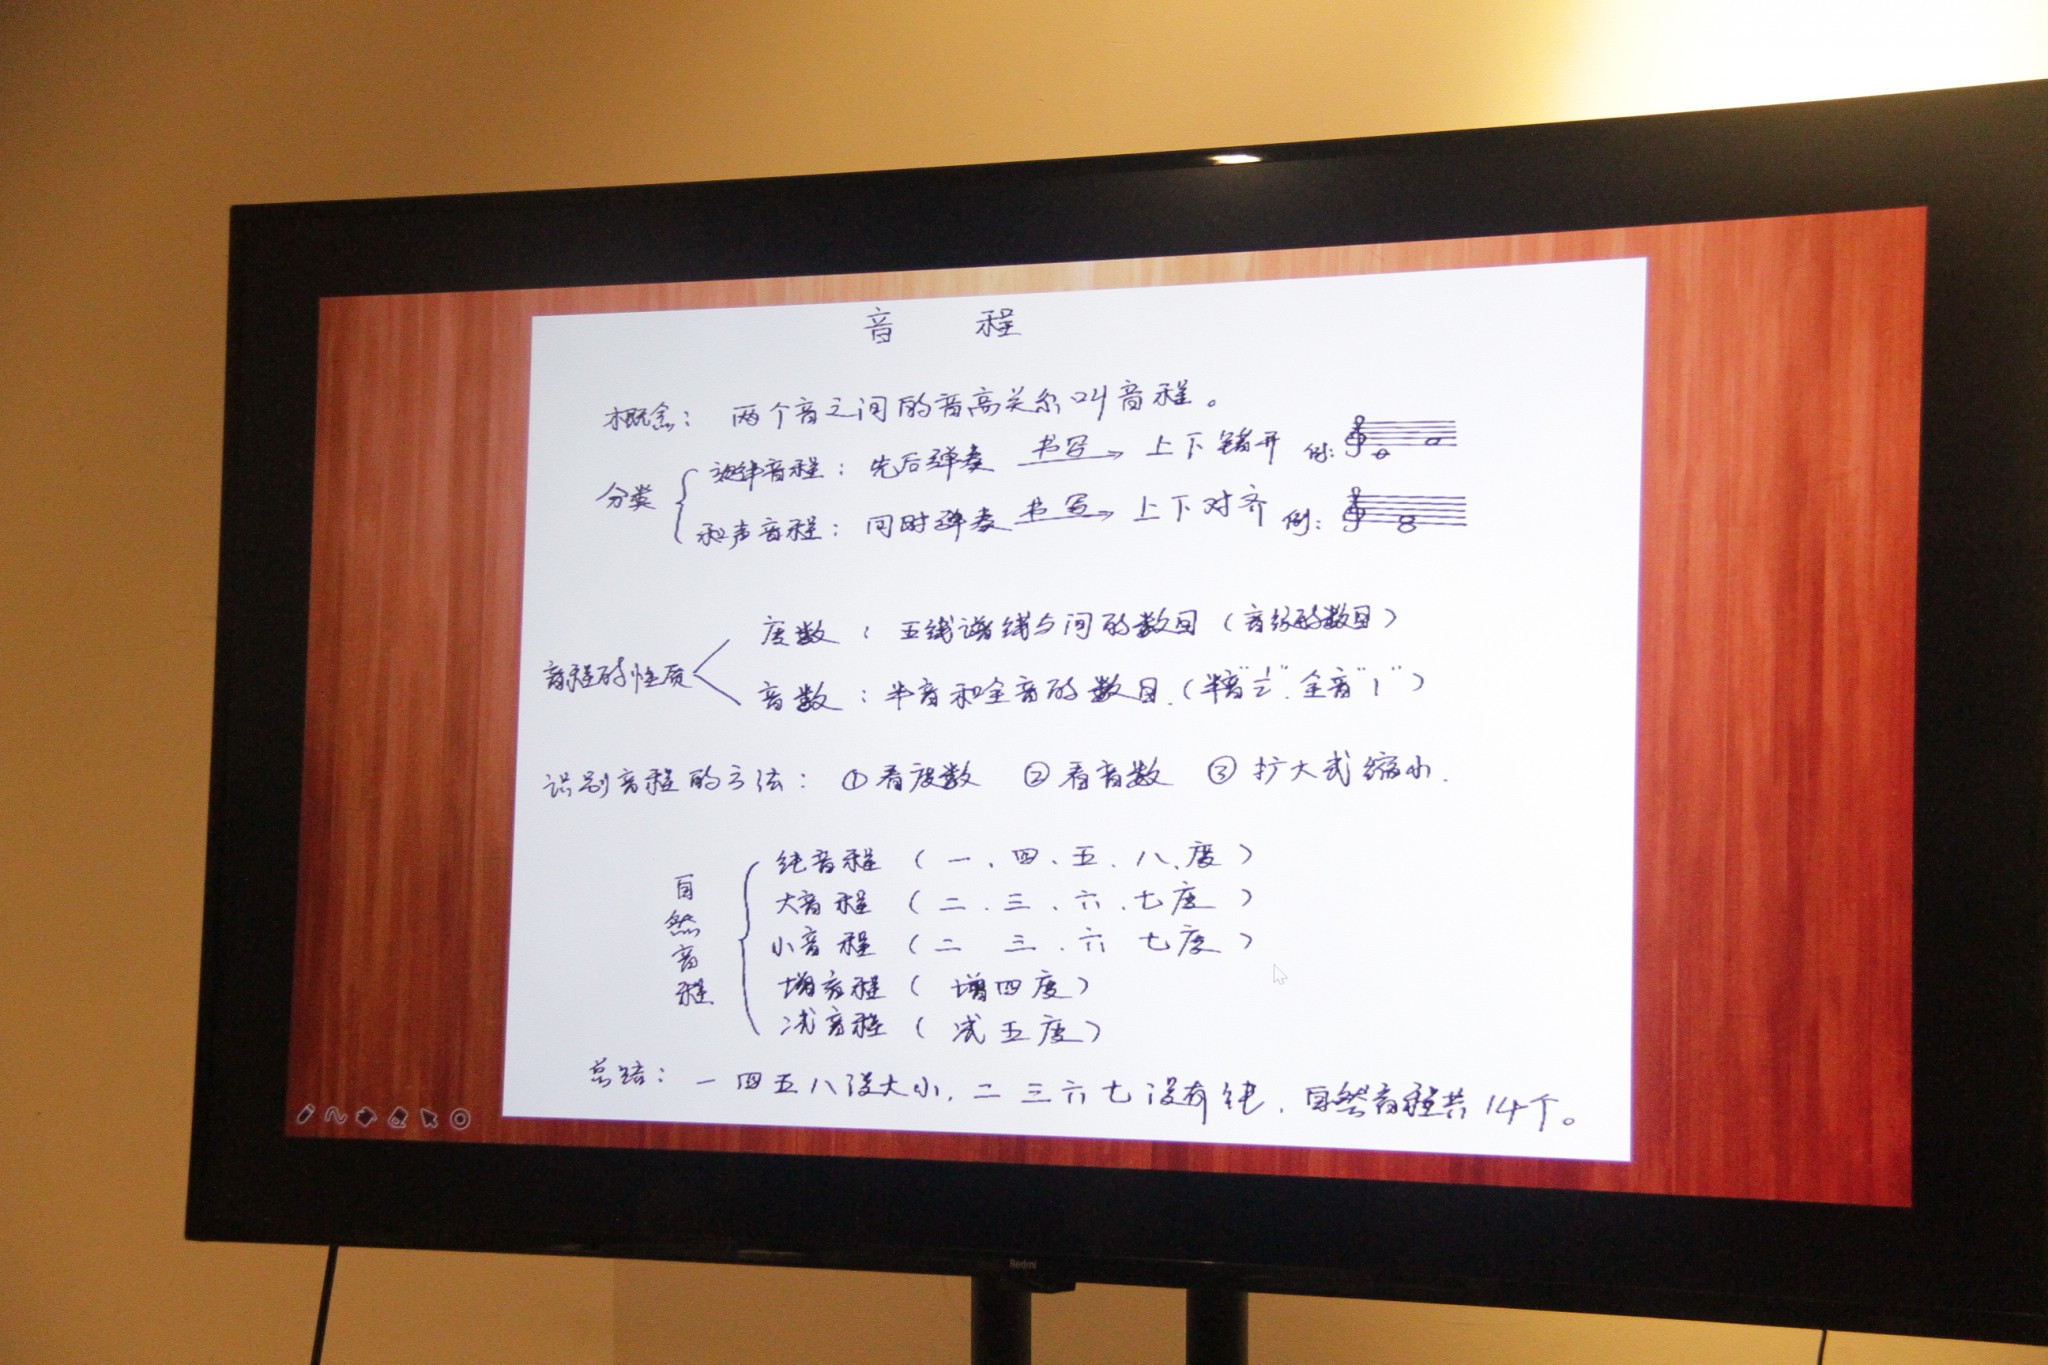 音 程
概念：两个音之间的音高关系叫音程。
分类
旋律音程：先后弹奏 书写 上下错开 例：
和声音程：同时弹奏 书写 上下对齐 例：
音程的性质
度数：五线谱线与间的数目（音级的数目）
音数：半音和全音的数目.（半音"½".全音"1"）
识别音程的方法：①看度数 ②看音数 ③扩大或缩小.
自然音程
纯音程（一、四、五、八、度）
大音程（二.三、六.七度）
小音程（二 三.六 七度）
增音程（增四度）
减音程（减五度）
总结：一四五八没大小，二三六七没有纯，自然音程共14个。
Redmi